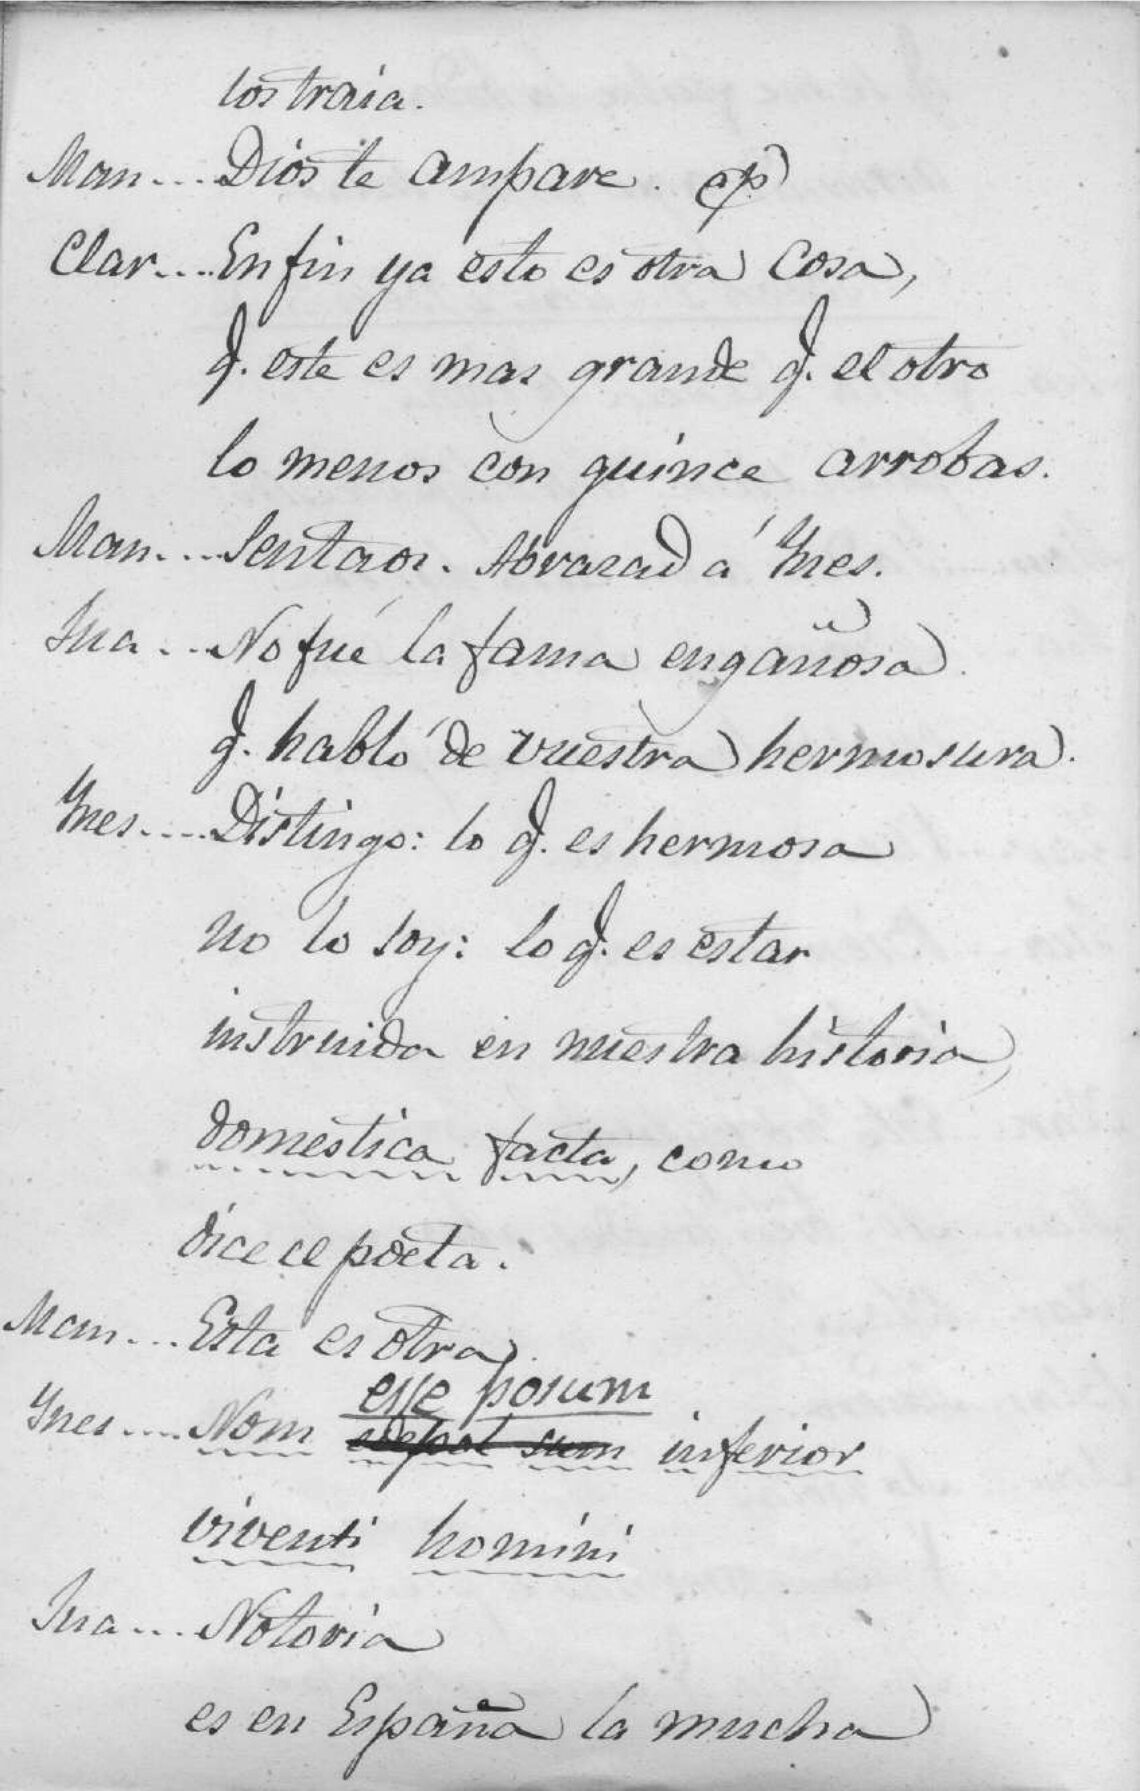 los traia.
Man... Dios te ampare. ap
Clar.... En fin ya esto es otra cosa,
q. este es mas grande q. el otro
lo menos con quince arrobas.
Man.... Sentaos. Abrazad á Ynes.
Jua... No fué la fama engañosa
q. habló de vuestra hermosura.
Ynes.... Distingo: lo q. es hermosa
no lo soy: lo q. es estar
instruida en nuestra historia,
domestica facta, como
dice el poeta.
Man.... Esta es otra.
esse posum
Ynes.... Nom edepol sum inferior
viventi homini
Jua.... Notoria
es en España la mucha